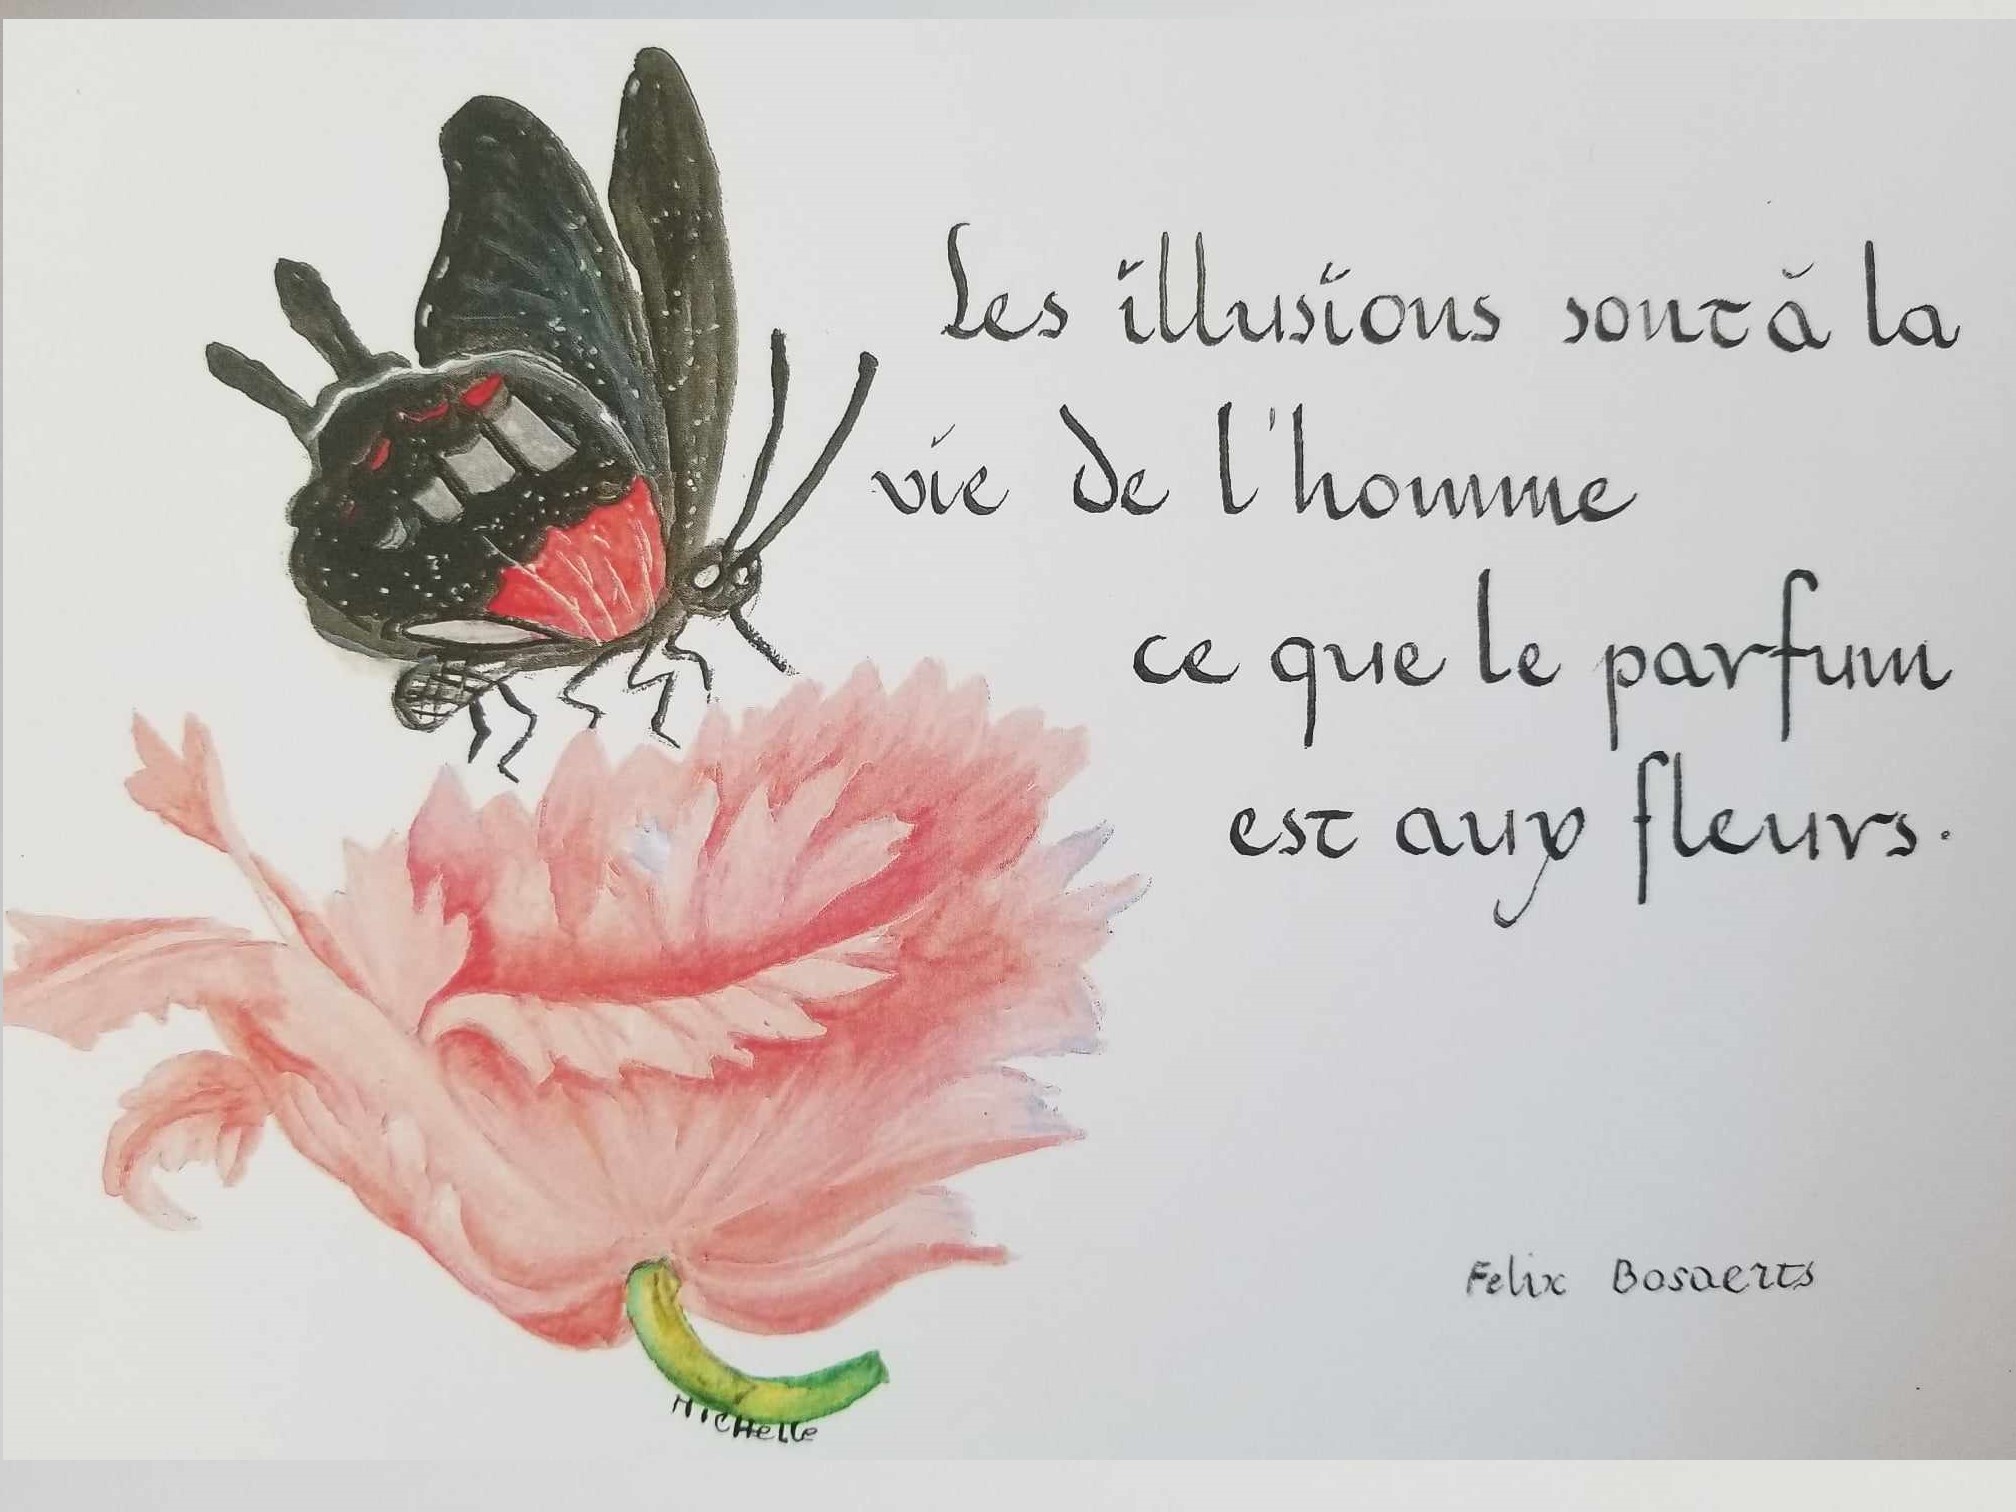 Les illusions sont à la
vie de l'homme
ce que le parfum
est aux fleurs.
Felix Bosaerts
Michelle